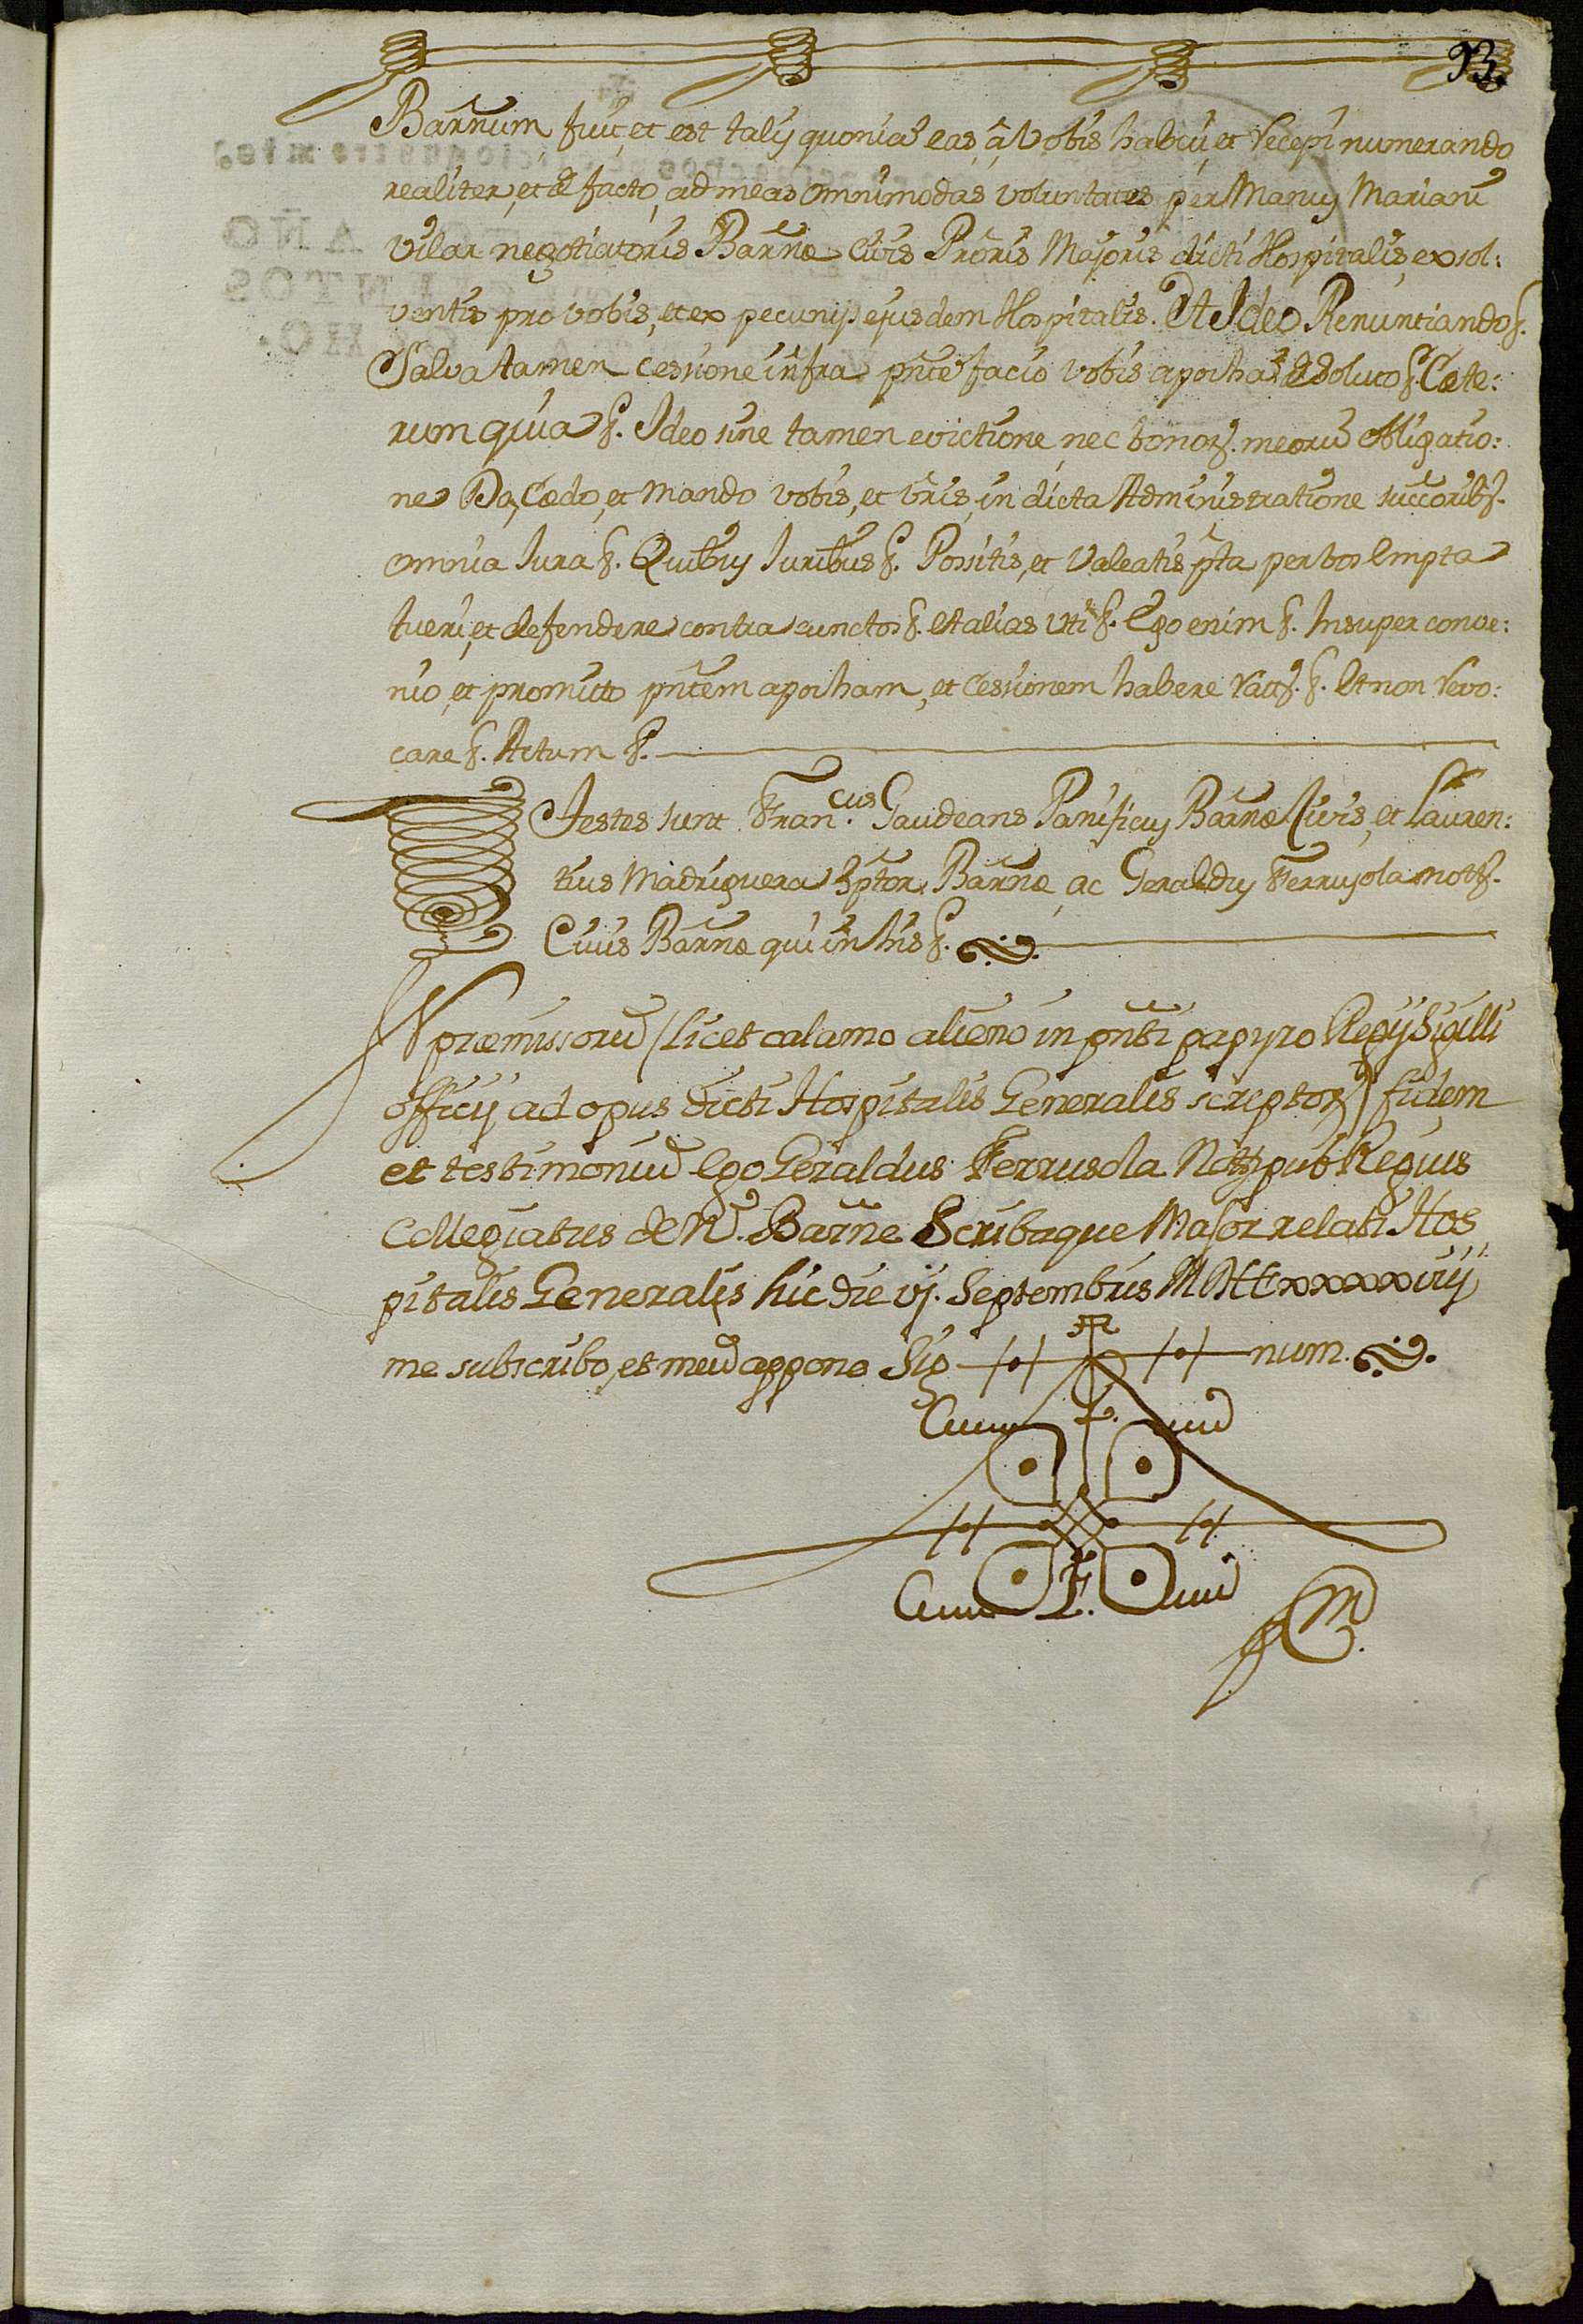 93.
Barñum fuit, et est talis quoniã eas, à Vobis habui, et recepi numerando
realiter, et de facto, ad meas omnimodas voluntates per Manus Mariani
Vilar negotiatoris Barñæ Civis Prõris Majoris dicti Hospitalis, exsol:
ventis pro vobis, et ex pecunijs ejusdem Hospitalis. Et Ideo Renuntiando &.
Salva tamen cessione infra pñte facio vobis apochã de soluto &. Cæte:
rum quia &. Ideo sine tamen evictione nec bonor. meorũ obligatio:
ne Do, Cædo, et Mando vobis, et vr̃is, in dicta Administratione succ̃orib.
omnia Jura &. Quibus Juribus &. Possitis, et Valeatis p̃ta per vos Empta
tueri, et defendere contra cunctos &. Et alias uti &. Ego enim &. Insuper conve:
nio, et promitto pñtem apocham, et Cessionem habere rat. &. Et non revo:
care &. Actum &.
Testes sunt Fran.cus Gaudeans Panificus Barñæ Civis, et Lauren:
tius Madriguera sc̃ptor Barñæ, ac Geraldus Ferrusola nott.
Civis Barñæ qui in his &.
In præmissorũ (licet calamo alieno in pñti papyro Regij Sigilli
officij ad opus dicti Hospitalis Generalis scriptor) fidem
et testimoniũ Ego Geraldus Ferrusola Nott. pub. Regius
Collegiatus de No. Barñe Scribaque Major relati Hos
pitalis Generalis hic die vj. Septembris MDCCxxxxxviij
me subscribo, et meũ appono Sig num.
F.
F.